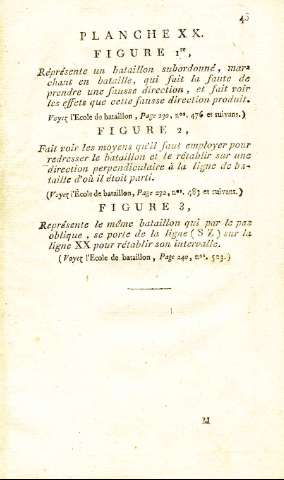 45
PLANCHE XX.
FIGURE 1re,
Réprésente un bataillon subordonné, mar-
chant en bataille, qui fait la faute de
prendre une fausse direction, et fait voir
les effets que cette fausse direction produit.
(Voyez l'Ecole de bataillon, Page 230, nos. 476 et suivans.)
FIGURE 2,
Fait voir les moyens qu'il faut employer pour
redresser le bataillon et le rétablir sur une
direction perpendiculaire à la ligne de ba-
taille d'où il étoit parti.
(Voyez l'École de bataillon, Page 232, nos. 483 et suivans.)
FIGURE 3,
Représente le même bataillon qui par la pas
oblique, se porte de la ligne (S Z) sur la
ligne XX pour rétablir son intervalle.
(Voyez l'Ecole de bataillon, Page 240, nos. 523.)
M